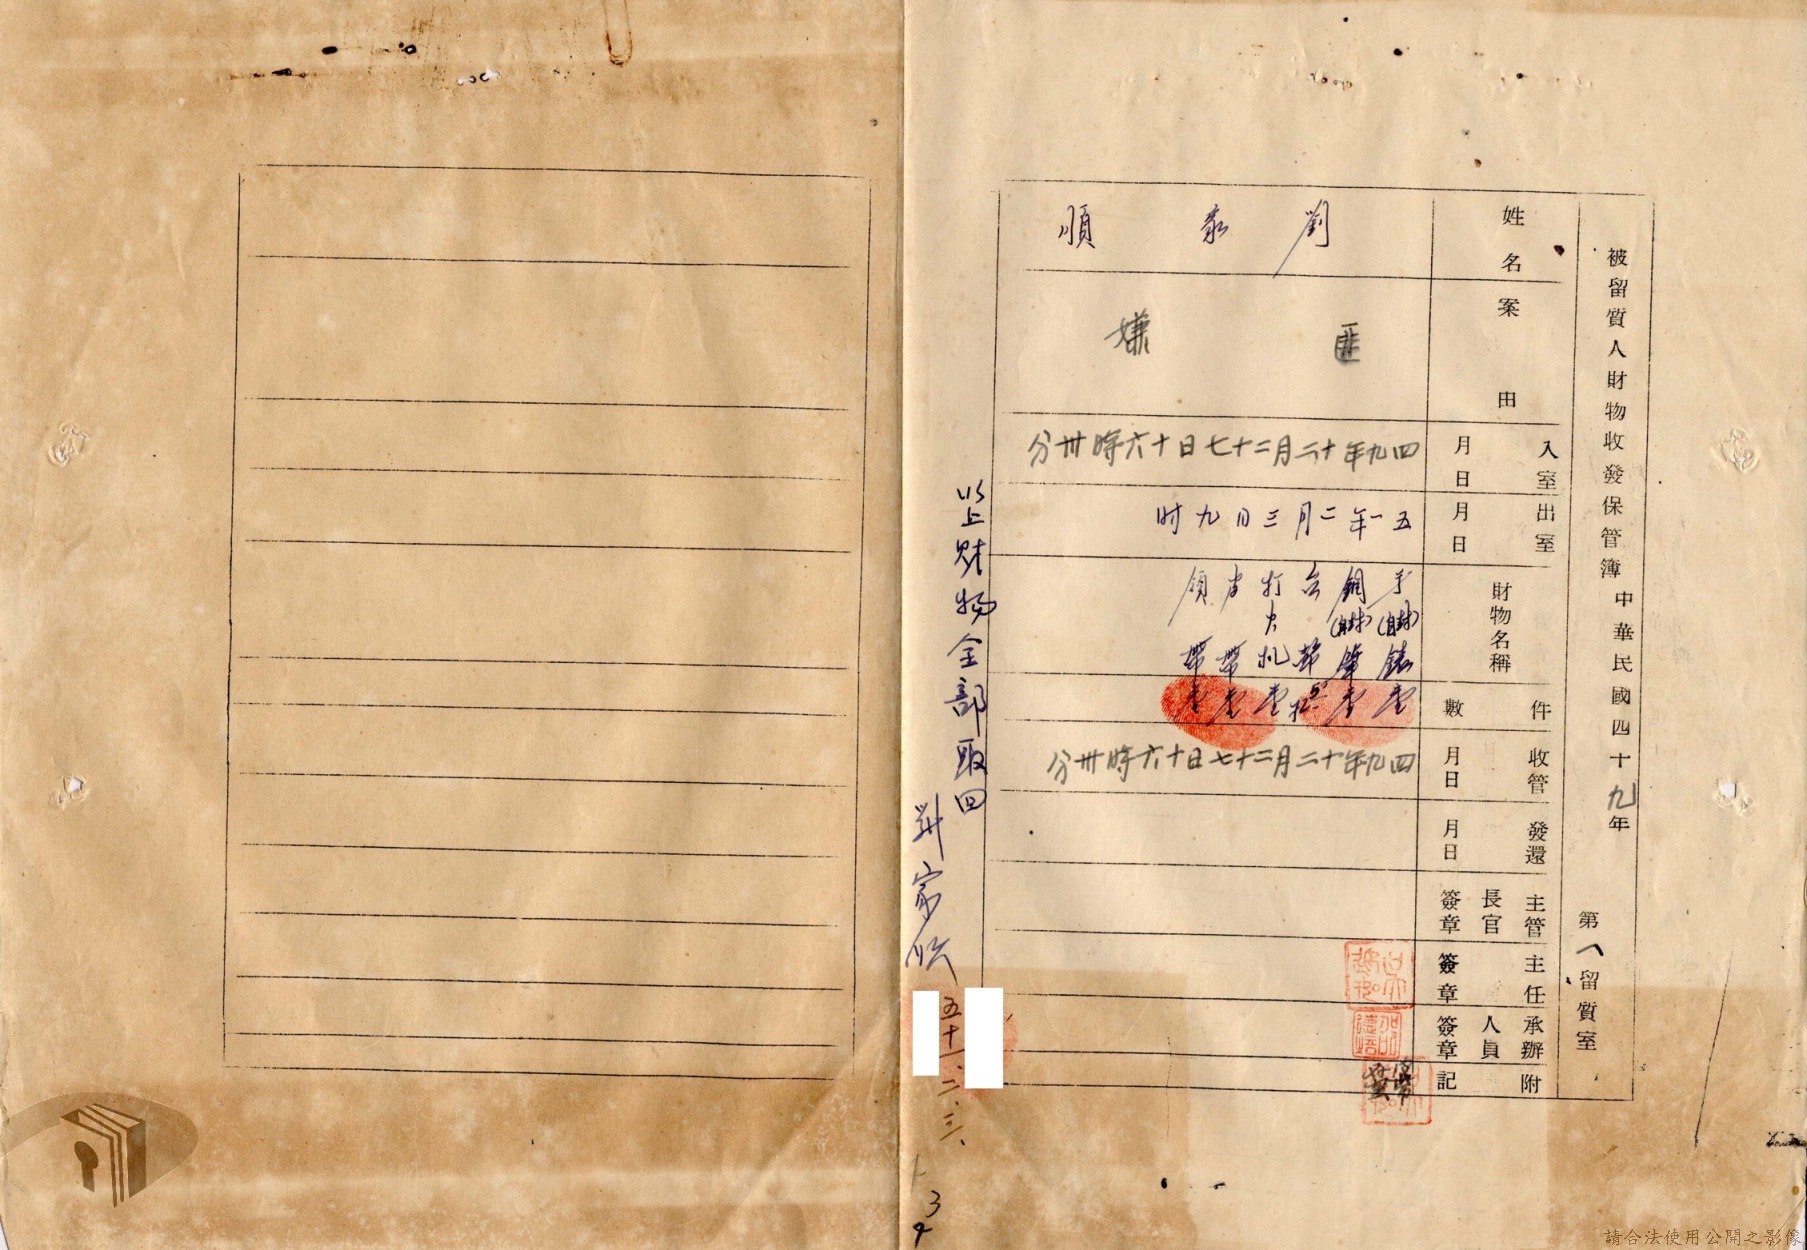 被留質人財物收發保管簿 中華民國四十九年
第八留質室
姓名 劉家順
案由 匪嫌
入室月日 四九年十二月二十七日十六時卅分
出室月日 五一年二月三日九时
財物名稱
件數
手(自封)錶壹
鋼(自封)筆壹
台幣
打火机壹
皮帶壹
領帶壹
收管月日 四九年十二月二十七日十六時卅分
發還月日
主管長官簽章
主任簽章
承辦人員簽章
附記
以上财物全部取回
劉家順
五十一、二、三、
34
請合法使用公開之影像